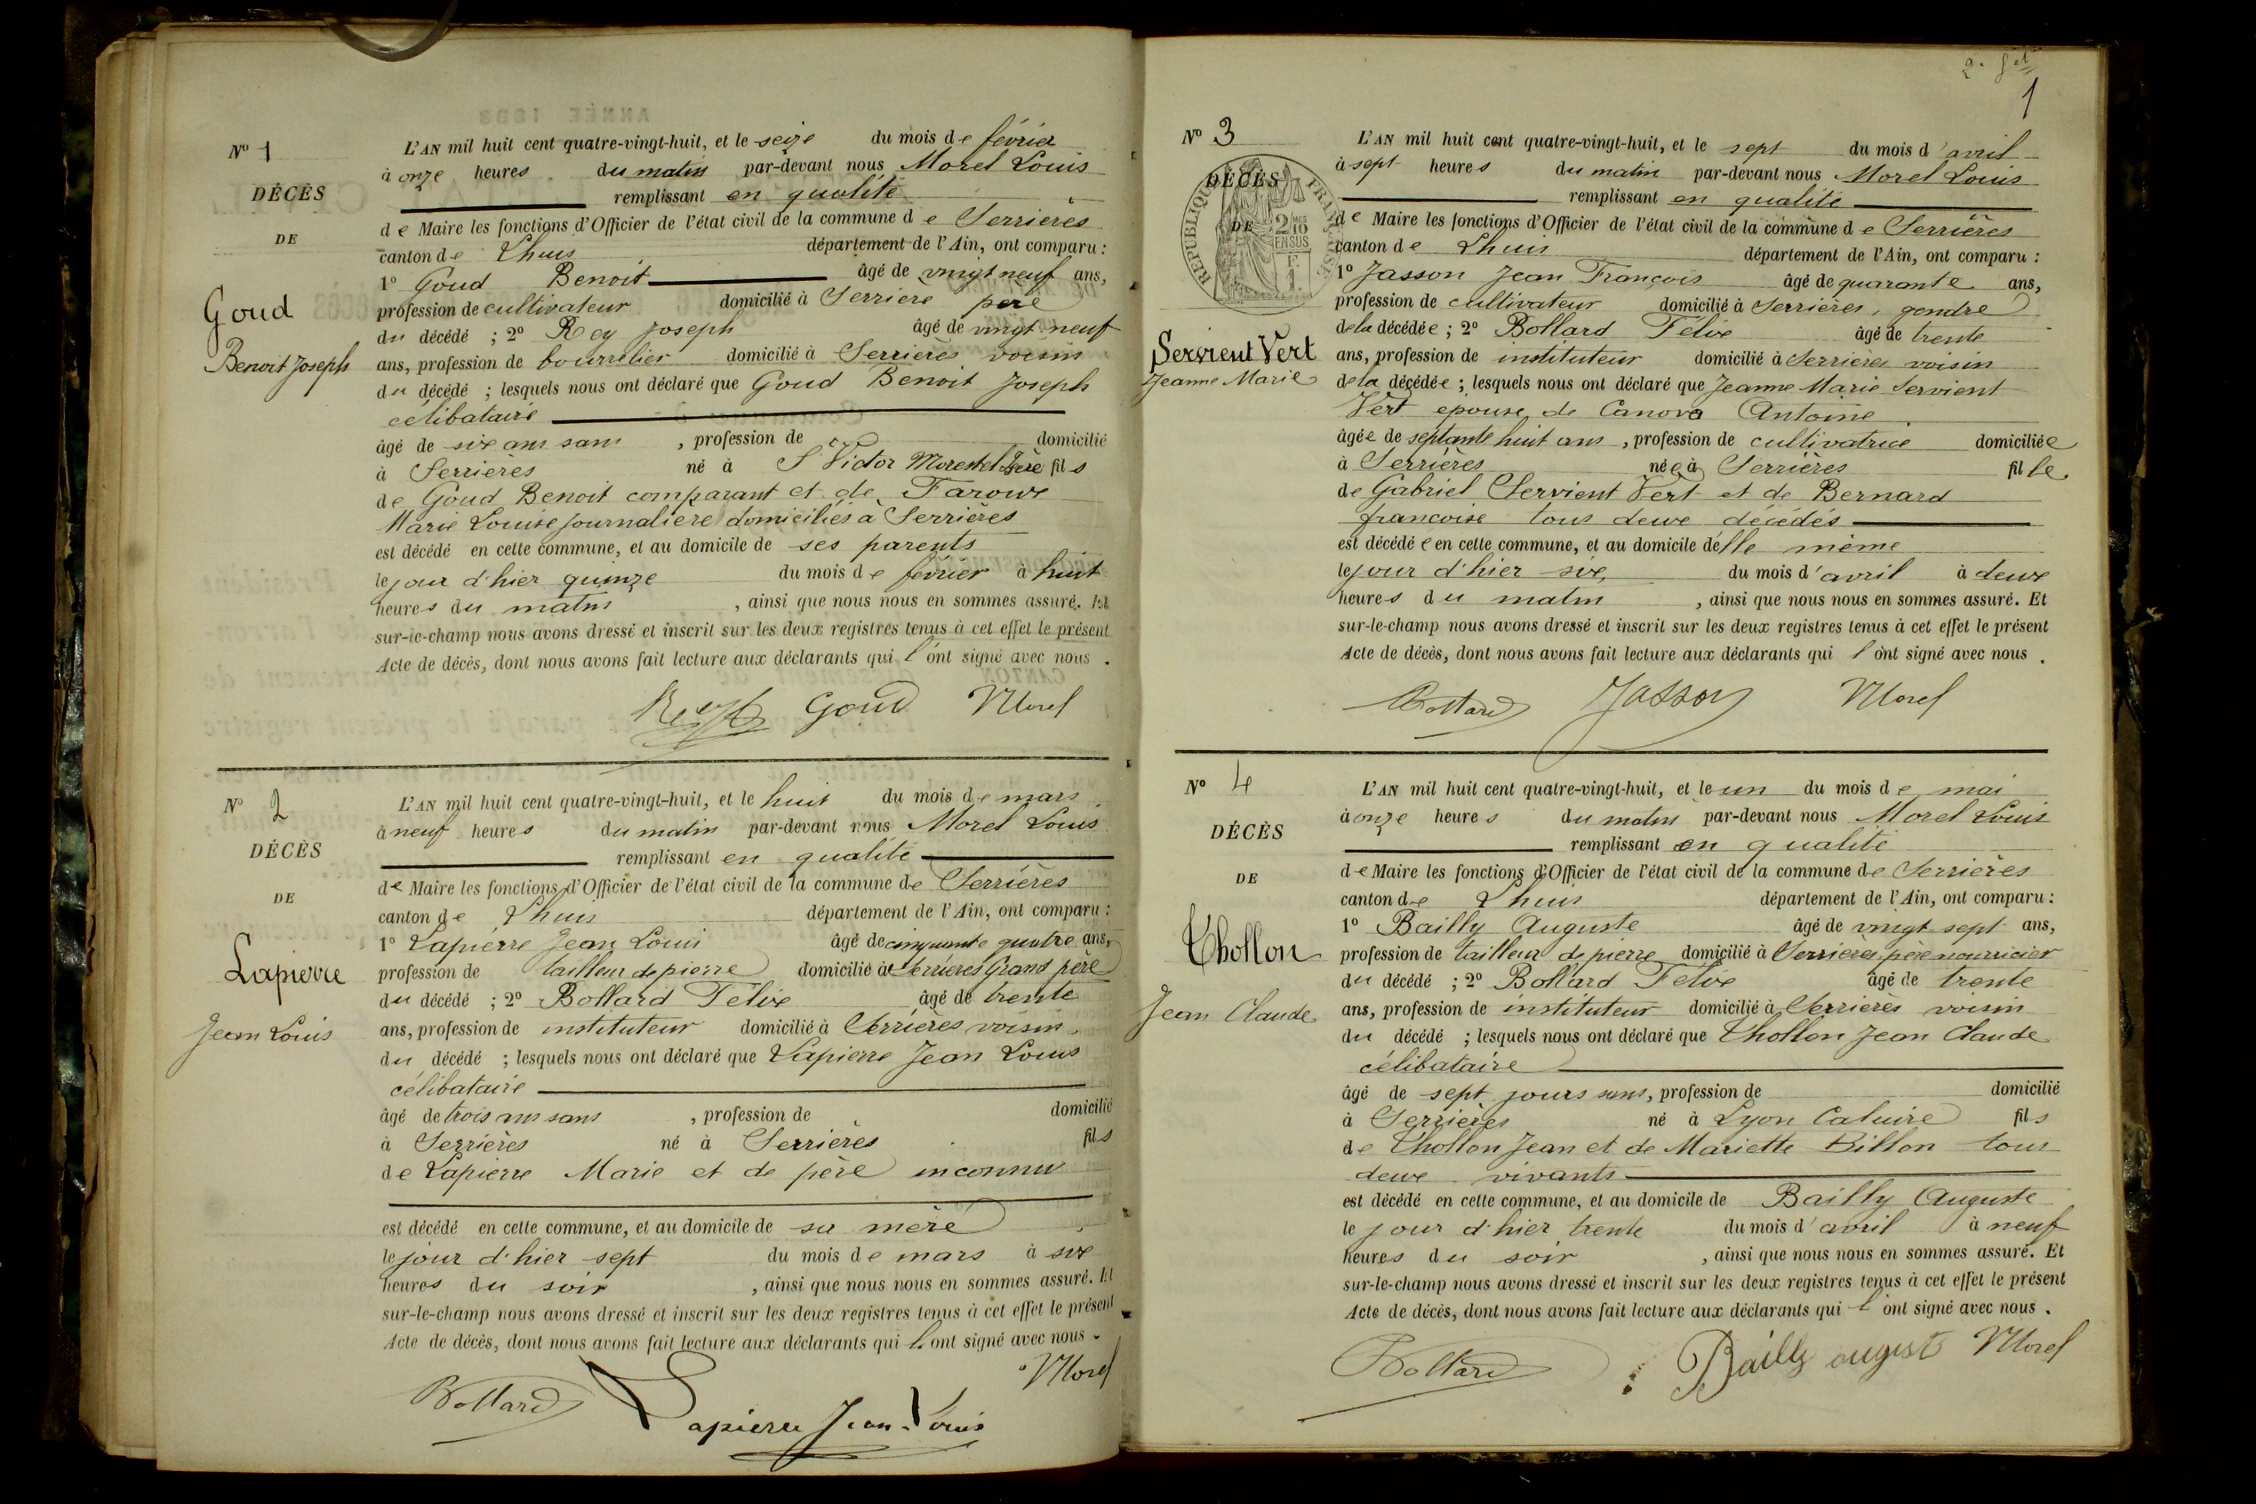 N° 1
DÉCÈS
DE
Goud
Benoit Joseph
L'AN mil huit cent quatre-vingt-huit, et le seize du mois de février
à onze heures du matin par-devant nous Morel Louis
remplissant en qualité
de Maire les fonctions d'Officier de l'état civil de la commune de Serrières
canton de Lhuis département de l'Ain, ont comparu :
1° Goud Benoit âgé de vingt neuf ans,
profession de cultivateur domicilié à Serrière père
du décédé ; 2° Rey Joseph âgé de vingt-neuf
ans, profession de bourrelier domicilié à Serrières voisin
du décédé ; lesquels nous ont déclaré que Goud Benoit Joseph
célibataire
âgé de six ans sans , profession de domicilié
à Serrières né à St Victor Morestel Isère fils
de Goud Benoit comparant et de
Marie Louise journalière domiciliés à Serrières
est décédé en cette commune, et au domicile de ses parents
le jour d'hier quinze du mois de février à huit
heures du matin , ainsi que nous nous en sommes assuré. Et
sur-le-champ nous avons dressé et inscrit sur les deux registres tenus à cet effet le présent
Acte de décès, dont nous avons fait lecture aux déclarants qui l'ont signé avec nous .
Rey Goud Morel
N° 2
DÉCÈS
DE
Lapierre
Jean Louis
L'AN mil huit cent quatre-vingt-huit, et le huit du mois de mars
à neuf heures du matin par-devant nous Morel Louis
remplissant en qualité
de Maire les fonctions d'Officier de l'état civil de la commune de Serrières
canton de Lhuis département de l'Ain, ont comparu :
1° Lapierre Jean Louis âgé de cinquante quatre ans,
profession de tailleur de pierre domicilié à Serrières Grand père
du décédé ; 2° Bollard Félix âgé de trente
ans, profession de instituteur domicilié à Serrières voisin
du décédé ; lesquels nous ont déclaré que Lapierre Jean Louis
célibataire
âgé de trois ans sans , profession de domicilié
à Serrières né à Serrières fils
de Lapierre Marie et de père inconnu
est décédé en cette commune, et au domicile de sa mère
le jour d'hier sept du mois de mars à six
heures du soir , ainsi que nous nous en sommes assuré. Et
sur-le-champ nous avons dressé et inscrit sur les deux registres tenus à cet effet le présent
Acte de décès, dont nous avons fait lecture aux déclarants qui l'ont signé avec nous .
Bollard Lapierre Jean-Louis Morel
1
N° 3
DÉCÈS
DE
RÉPUBLIQUE FRANÇAISE
Servient Vert
Jeanne Marie
L'AN mil huit cent quatre-vingt-huit, et le sept du mois d'avril
à sept heures du matin par-devant nous Morel Louis
remplissant en qualité
de Maire les fonctions d'Officier de l'état civil de la commune de Serrières
canton de Lhuis département de l'Ain, ont comparu :
1° Jasson Jean François âgé de quarante ans,
profession de cultivateur domicilié à Serrières, gendre
de la décédée ; 2° Bollard Félix âgé de trente
ans, profession de instituteur domicilié à Serrières voisin
de la décédée ; lesquels nous ont déclaré que Jeanne Marie Servient
Vert épouse de Canova Antoine
âgée de septante huit ans , profession de cultivatrice domiciliée
à Serrières née à Serrières fille
de Gabriel Servient Vert et de Bernard
françoise tous deux décédés
est décédée en cette commune, et au domicile d'elle même
le jour d'hier six du mois d'avril à deux
heures du matin , ainsi que nous nous en sommes assuré. Et
sur-le-champ nous avons dressé et inscrit sur les deux registres tenus à cet effet le présent
Acte de décès, dont nous avons fait lecture aux déclarants qui l'ont signé avec nous .
Bollard Jasson Morel
N° 4
DÉCÈS
DE
Thollon
Jean Claude
L'AN mil huit cent quatre-vingt-huit, et le un du mois de mai
à onze heures du matin par-devant nous Morel Louis
remplissant en qualité
de Maire les fonctions d'Officier de l'état civil de la commune de Serrières
canton de Lhuis département de l'Ain, ont comparu :
1° Bailly Auguste âgé de vingt sept ans,
profession de tailleur de pierre domicilié à Serrières père nourricier
du décédé ; 2° Bollard Félix âgé de trente
ans, profession de instituteur domicilié à Serrières voisin
du décédé ; lesquels nous ont déclaré que Thollon Jean Claude
célibataire
âgé de sept jours sans, profession de domicilié
à Serrières né à Lyon Caluire fils
de Thollon Jean et de Mariette Billon tous
deux vivants
est décédé en cette commune, et au domicile de Bailly Auguste
le jour d'hier trente du mois d'avril à neuf
heures du soir , ainsi que nous nous en sommes assuré. Et
sur-le-champ nous avons dressé et inscrit sur les deux registres tenus à cet effet le présent
Acte de décès, dont nous avons fait lecture aux déclarants qui l'ont signé avec nous .
Bollard Bailly august Morel